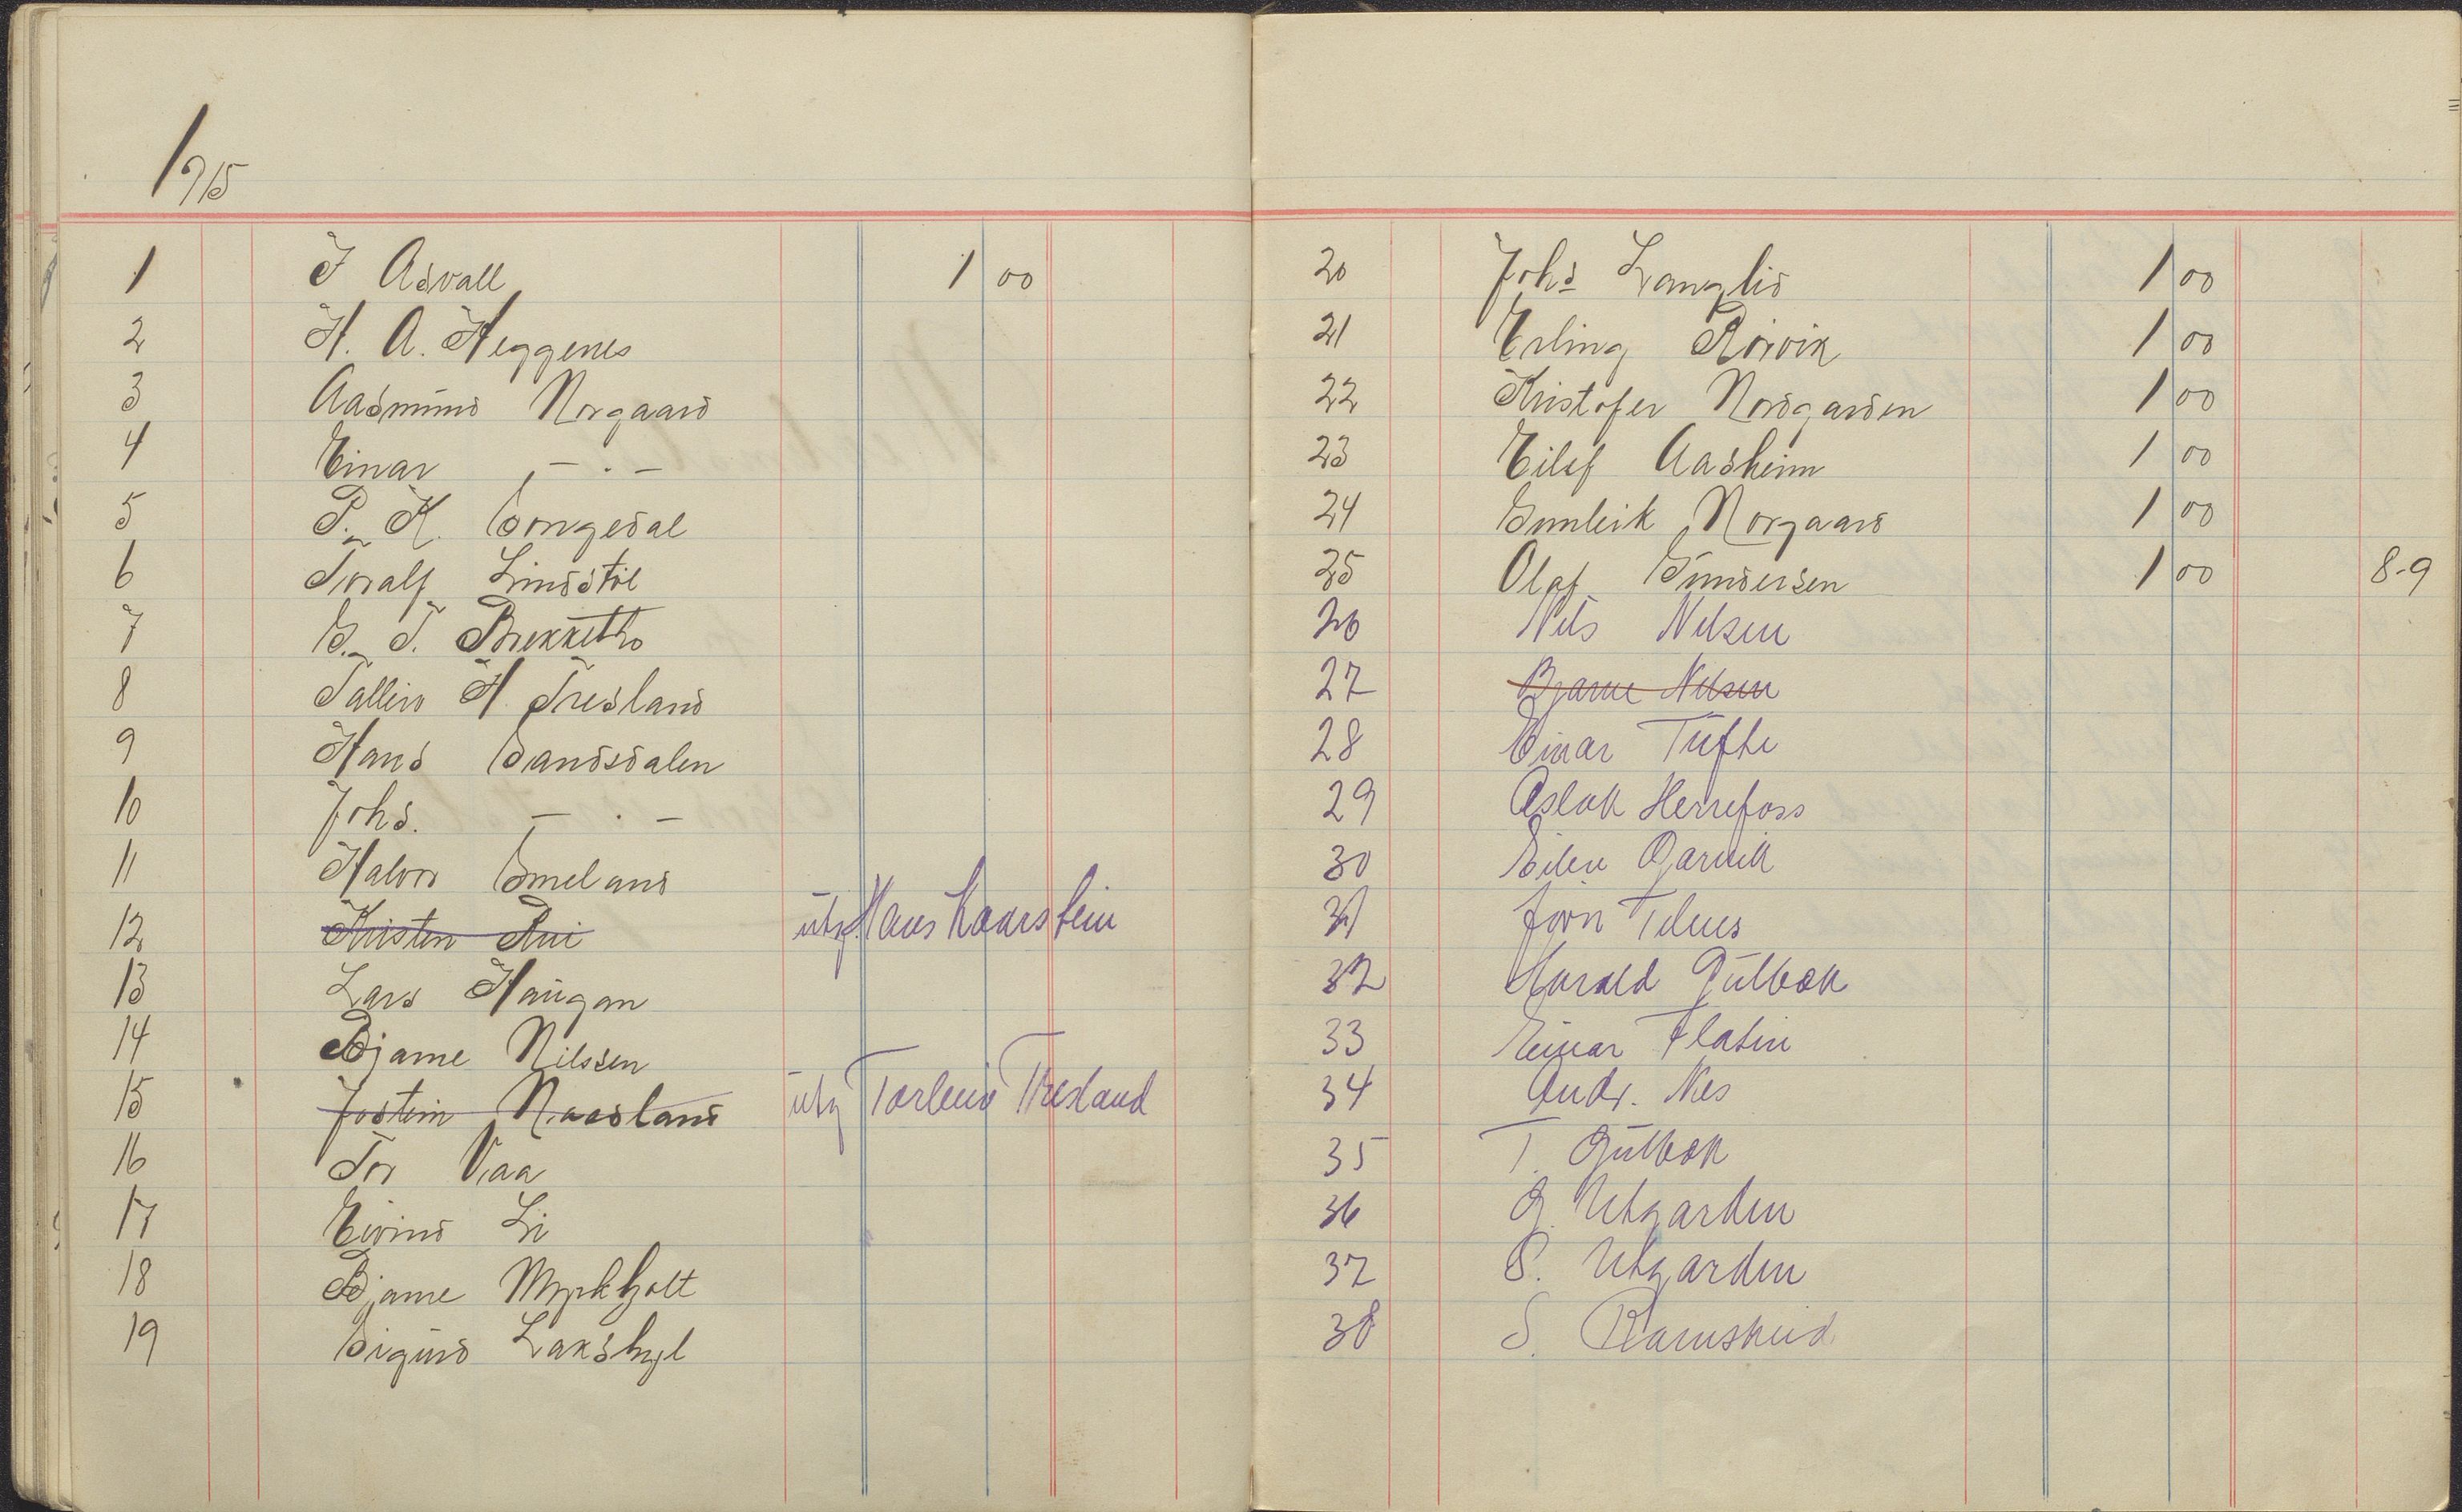 1915
1 J Asvall 1 00
2 H. A. Heggenes
3 Aasmund Norgaard
4 Einar — . —
5 P. K. Songedal
6 Toralf Lindstøl
7 G. T. Brekketho
8 Talleiv H. Tresland
9 Hans Sandsdalen
10 Johs. — . —
11 Halvor Smeland
12 Kristen Rui utg. Hans Kaarstein
13 Lars Haugan
14 Bjarne Nilssen
15 Jostein Naasland utg Torleiv Tresland
16 Tor Vaa
17 Eivind Li
18 Bjarne Myrkholt
19 Sigurd Lakshyl
20 Johs Langlid 1 00
21 Erling Rörvik 1 00
22 Kristofer Nordgarden 1 00
23 Eilef Aasheim 1 00
24 Gunleik Norgaard 1 00
25 Olaf Gundersen 1 00 8-9
26 Nils Nilsen
27 Bjarne Nilsen
28 Einar Tufte
29 Aslak Herrefoss
30 Eilev
31 Jörn Telnes
32 Harald Gulbæk
33 Einar Flatin
34 Andr. Nes
35 T. Gulbæk
36 G. Utgarden
37 S. Utgarden
38 S. Ramskeid